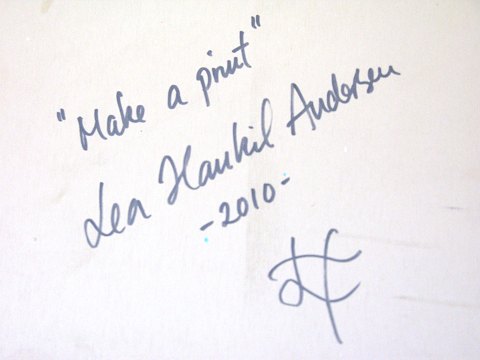 "Make a print"
Lea Haukil Andersen
-2010-